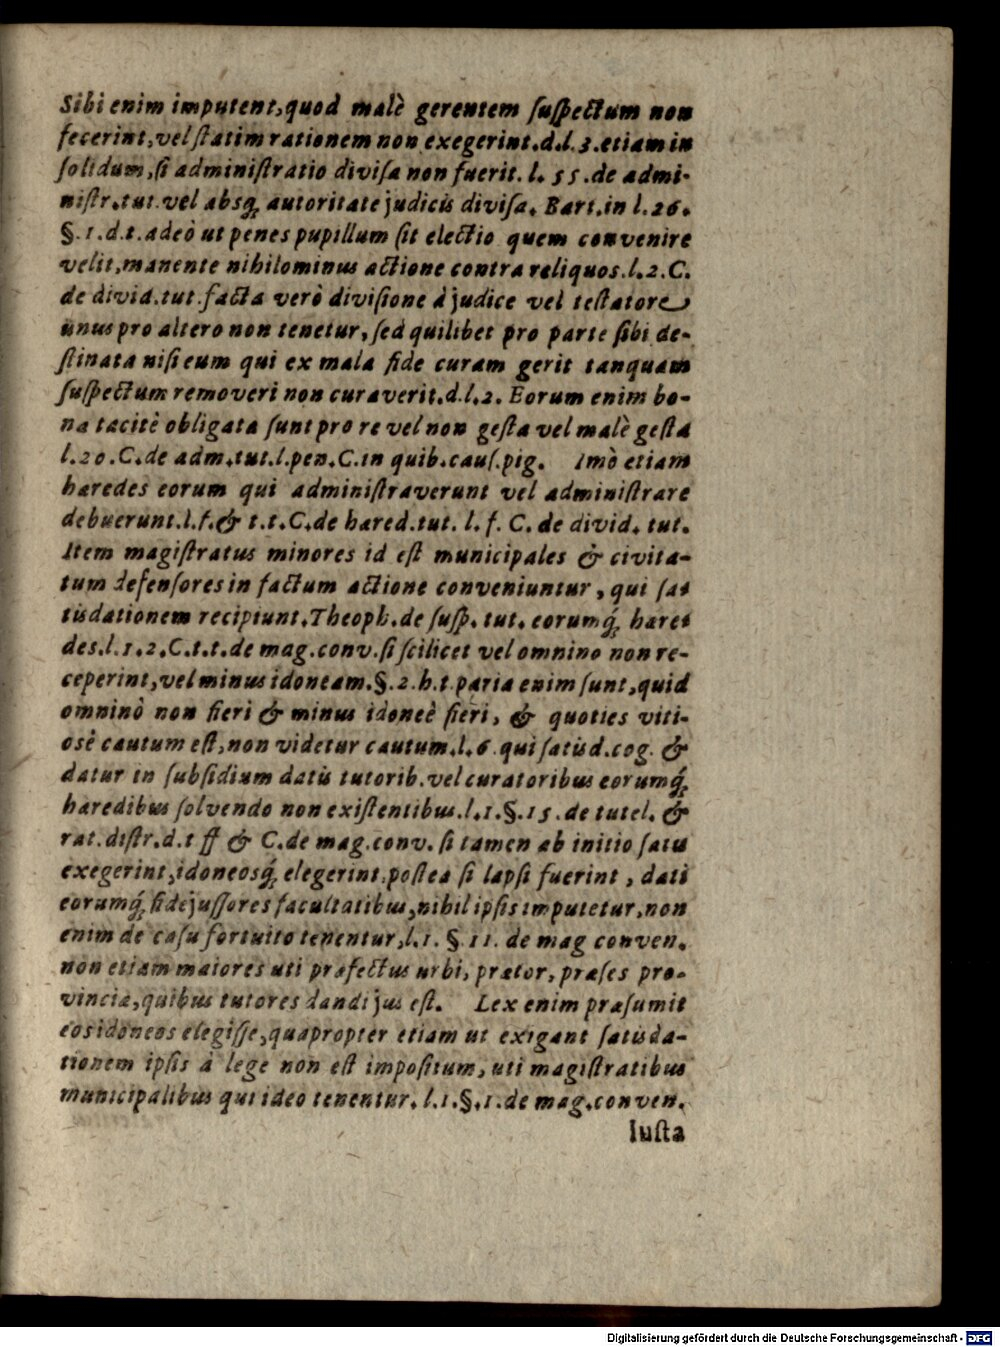 Sibi enim imputent, quod malè gerentem ſuſpectum non
fecerint, vel ſtatim rationem non exegerint. d. l. 3. etiam in
ſolidum, ſi adminiſtratio diviſa non fuerit. l. 55. de admi-
niſtr. tut. vel absq́; autoritate judicis diviſa. Bart. in l. 26.
§. 1. d. t. adeò ut penes pupillum ſit electio quem convenire
velit, manente nihilominus actione contra reliquos. l. 2. C.
de divid. tut. facta verò diviſione à judice vel teſtatore
unus pro altero non tenetur, ſed quilibet pro parte ſibi de-
ſtinata niſi eum qui ex mala fide curam gerit tanquam
ſuſpectum removeri non curaverit. d. l. 2. Eorum enim bo-
na tacitè obligata ſunt pro re vel non geſta vel malè geſta
l. 20. C. de adm. tut. l. pen. C. in quib. cauſ. pig. Imò etiam
hæredes eorum qui adminiſtraverunt vel adminiſtrare
debuerunt. l. f. & t. t. C. de hæred. tut. l. f. C. de divid. tut.
Item magiſtratus minores id eſt municipales & civita-
tum defenſores in factum actione conveniuntur, qui ſa-
tisdationem recipiunt. Theoph. de ſuſp. tut. eorumq́; hære-
des. l. 1. 2. C. t. t. de mag. conv. ſi ſcilicet vel omnino non re-
ceperint, vel minus idoneam. §. 2. h. t. paria enim ſunt, quid
omninò non fieri & minus idoneè fieri, & quoties viti-
osè cautum eſt, non videtur cautum. l. 6. qui ſatisd. cog. &
datur in ſubſidium datis tutorib. vel curatoribus eorumq́;
hæredibus ſolvendo non exiſtentibus. l. 1. §. 15. de tutel. &
rat. diſtr. d. t ff & C. de mag. conv. ſi tamen ab initio ſatis
exegerint, idoneosq́; elegerint, poſtea ſi lapſi fuerint, dati
eorumq́; fidejuſſores facultatibus, nihil ipſis imputetur, non
enim de caſu fortuito tenentur, l. 1. §. 11. de mag conven.
non etiam maiores uti præfectus urbi, prætor, præſes pro-
vinciæ, quibus tutores dandi jus eſt. Lex enim præſumit
eos idoneos elegiſſe, quapropter etiam ut exigant ſatisda-
tionem ipſis à lege non eſt impoſitum, uti magiſtratibus
municipalibus qui ideo tenentur. l. 1. §. 1. de mag. conven.
Iuſta
Digitalisierung gefördert durch die Deutsche Forschungsgemeinschaft - DFG